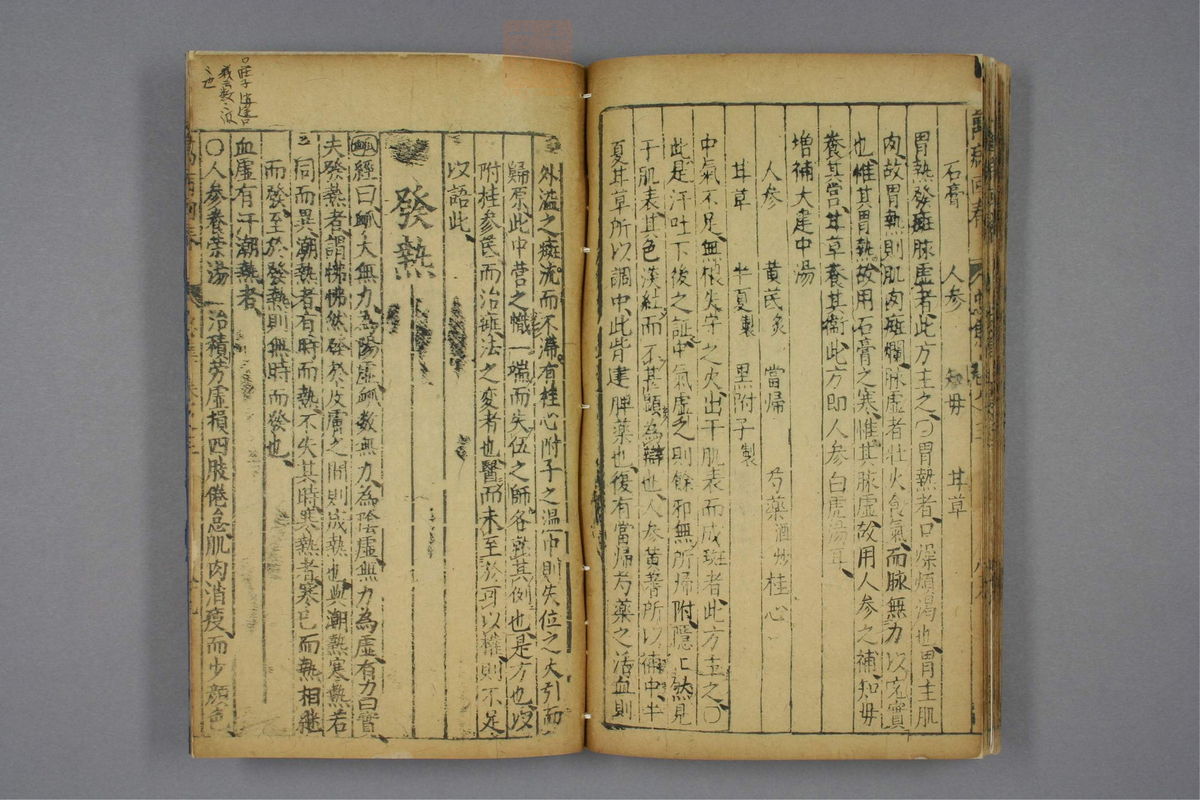 石膏　人參　知母　甘草
胃熱發斑脉虛者此方主之○胃熱者口燥煩渴也胃主肌
肉故胃熱則肌肉斑爛脉虛者壯火食氣而脉無力以充實
也惟其胃熱故用石膏之寒惟其脉虛故用人參之補知毋
養其營甘草養其衛此方即人參白虎湯耳
增補大建中湯
人參　黃芪炙　當歸　芍藥酒炒　桂心
甘草　半夏製　黑附子製
中氣不足無根失守之火出于肌表而成斑者此方主之○
此是汗吐下後之証中氣虛乏則餘邪無所歸附隱〻然見
于肌表其色淡紅而不甚顯為辯也人參黃蓍所以補中半
夏甘草所以調中此皆建脾藥也復有當歸芍藥之活血則
外溢之斑流而不滯有桂心附子之溫中則失位之火引而
歸原此中营之幟一端而失伍之師各就其例也是方也
附桂參芪而治斑法之変者也醫而未至於可以權則不足
以語此
發熱
經曰脉大無力為陽虛脉数無力為陰虛無力為虛有力曰實
夫發熱者謂怫怫然發於皮膚之間則成熱也與潮熱寒熱若
同而異潮熱者有時而熱不失其時寒熱者寒已而熱相繼
而發至於發熱則無時而發也
血虛有汗潮熱者
○人參養荣湯　治積劳虛損四肢倦怠肌肉消瘦而少顔色